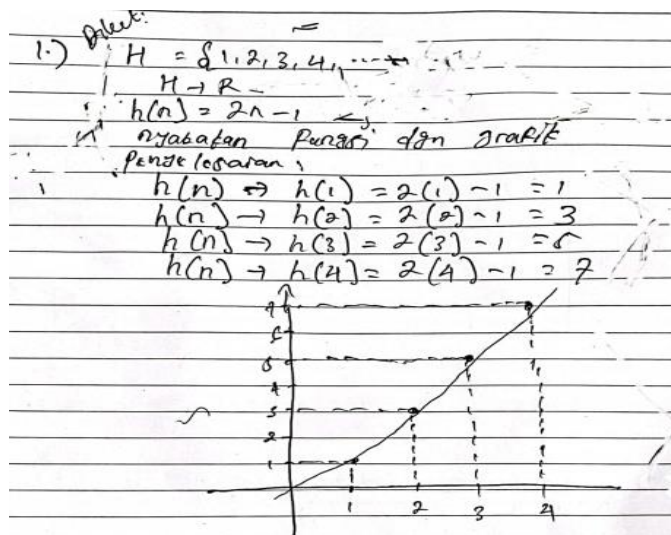 1.) Diket:
H = {1, 2, 3, 4, ....
H → R
h(n) = 2n - 1
nyatakan Fungsi dgn grafik
Penyelesaian:
h(n) → h(1) = 2(1) - 1 = 1
h(n) → h(2) = 2(2) - 1 = 3
h(n) → h(3) = 2(3) - 1 = 5
h(n) → h(4) = 2(4) - 1 = 7
7
6
5
4
3
2
1
1 2 3 4